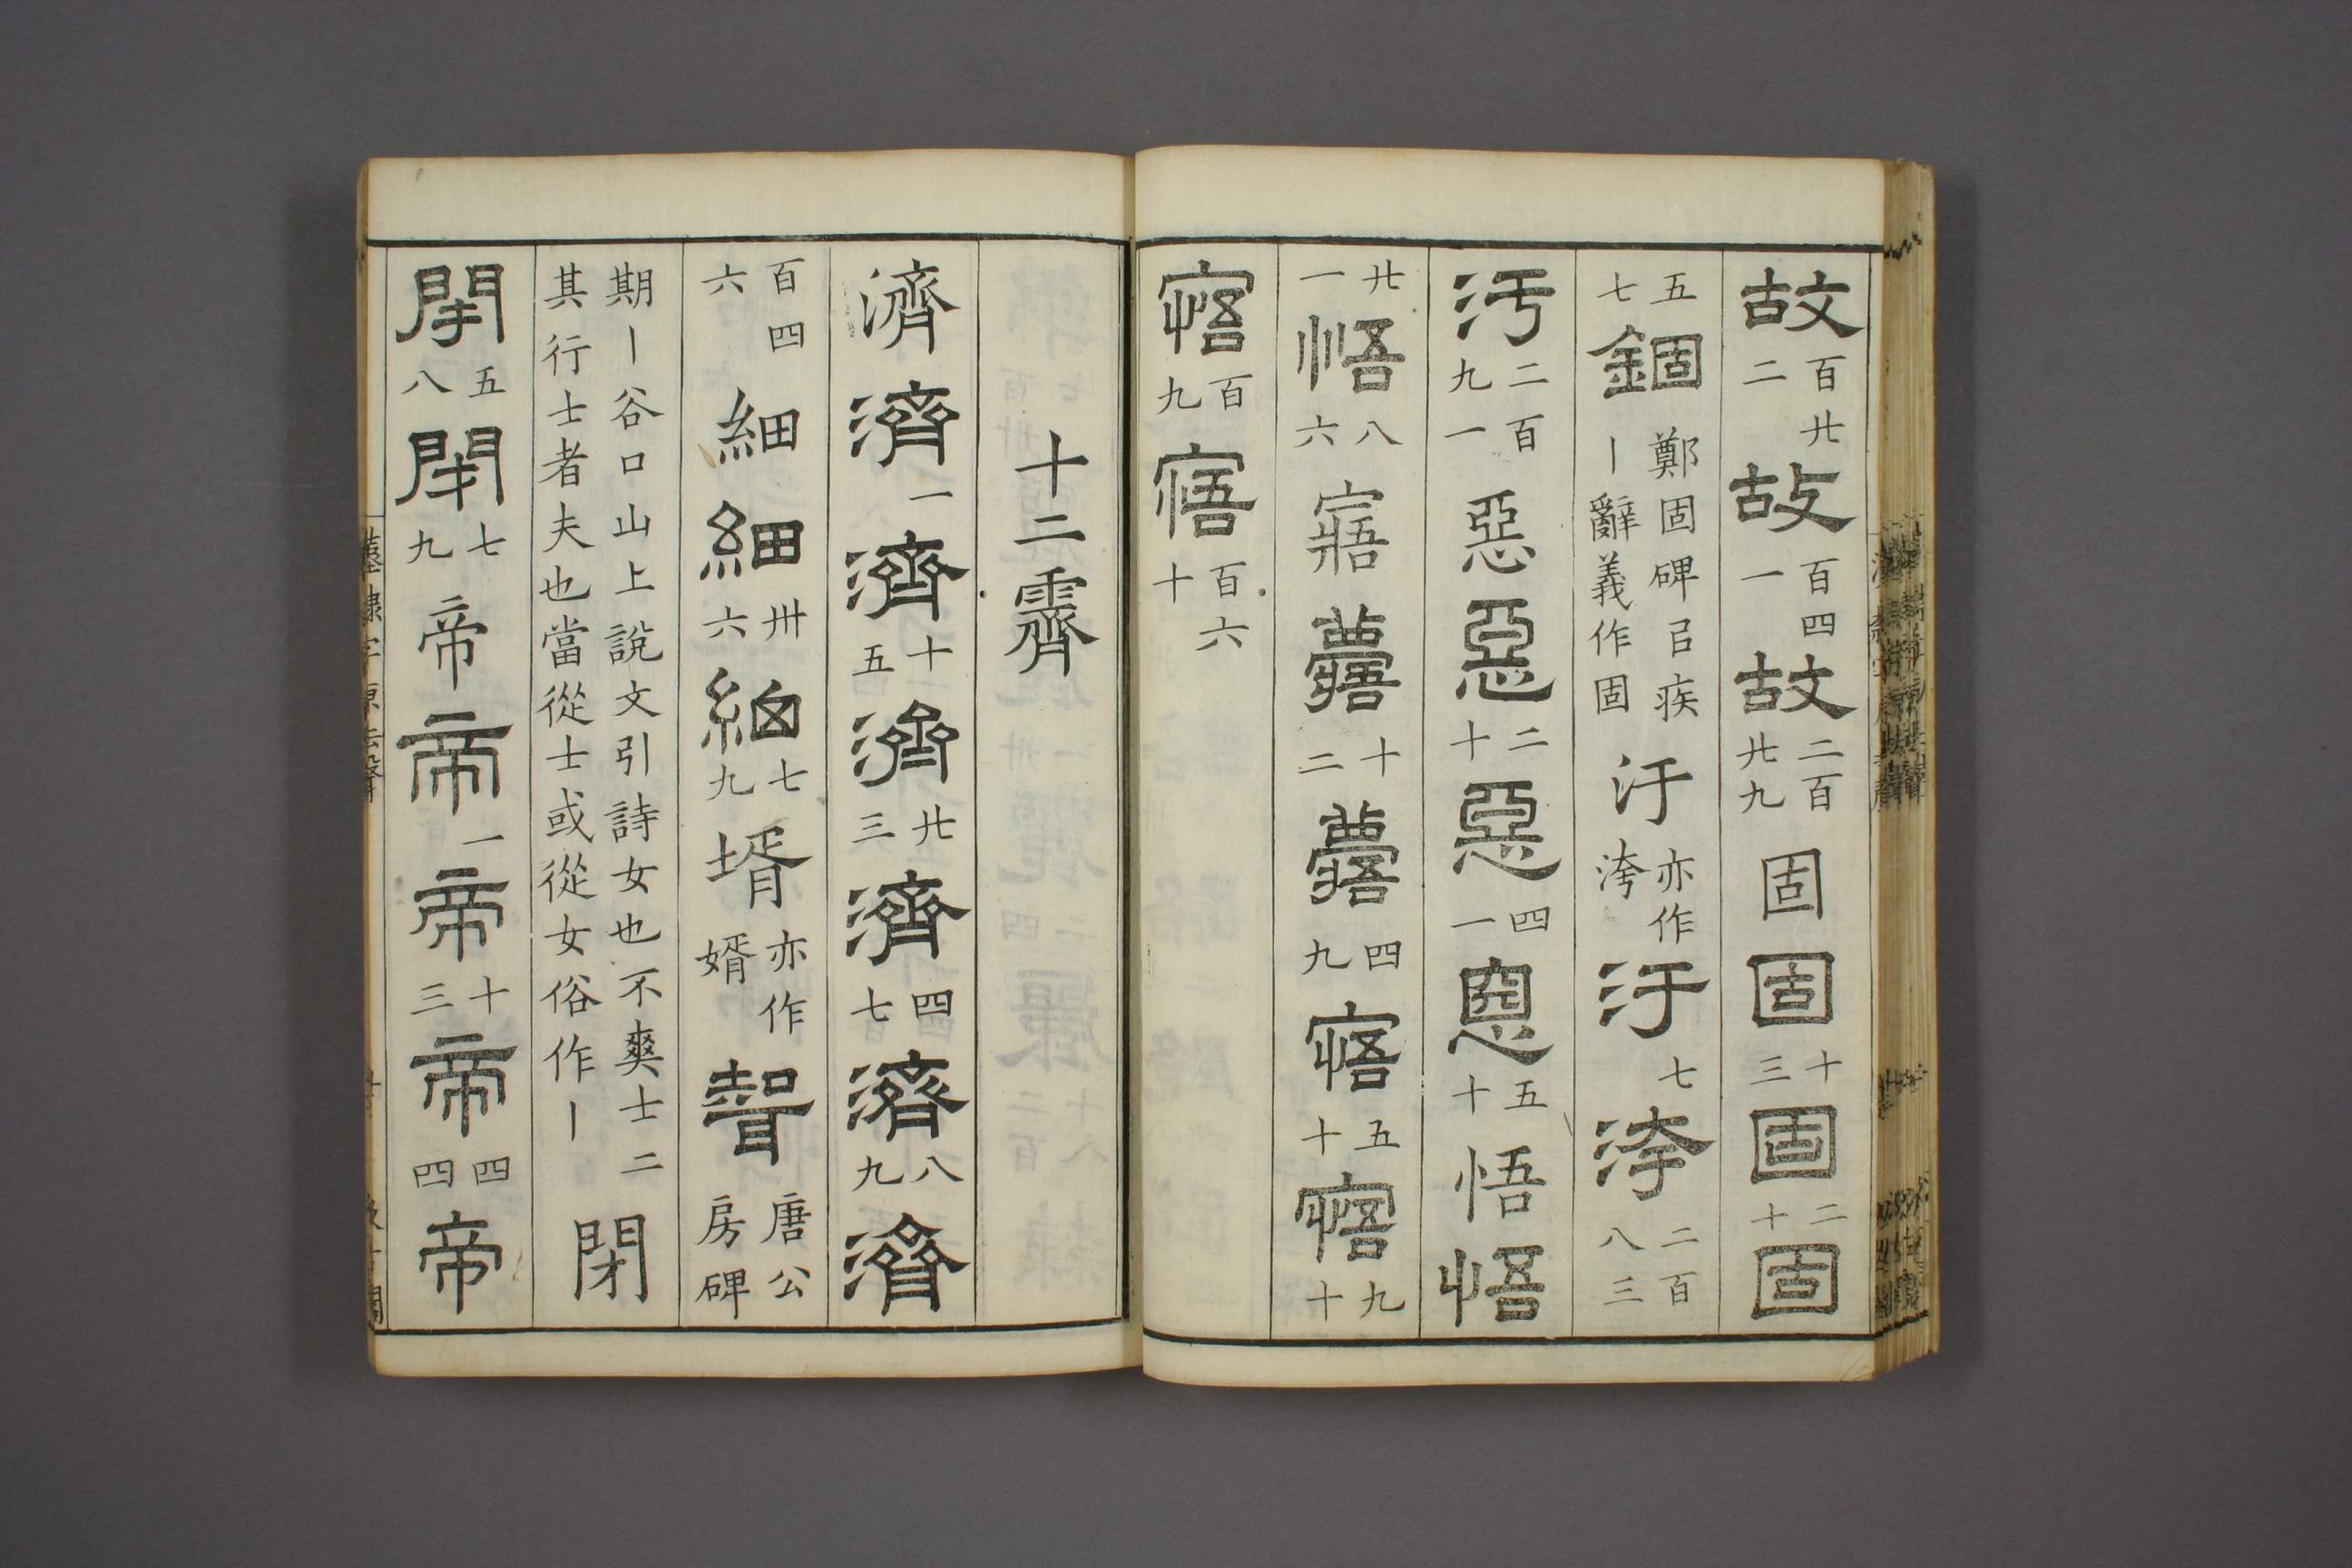 故百廿二故百四一故二百廿九固固十三固二十固
五七錮鄭固碑㠯疾丨辭義作固汙亦作洿汙七洿二百八三
汚二百九一惡惡二十惡四一惡五十悟悟
廿一悟八六寤寤十二寤四九寤五十寤九十
寤百九寤百六十
十二霽
濟濟一濟十五濟廿三濟四七濟八九濟
百四六細細卅六細七九壻亦作婿壻唐公房碑
期丨谷口山上說文引詩女也不爽士二其行士者夫也當從士或從女俗作丨閉
閉五八閉七九帝帝一帝十三帝四四帝